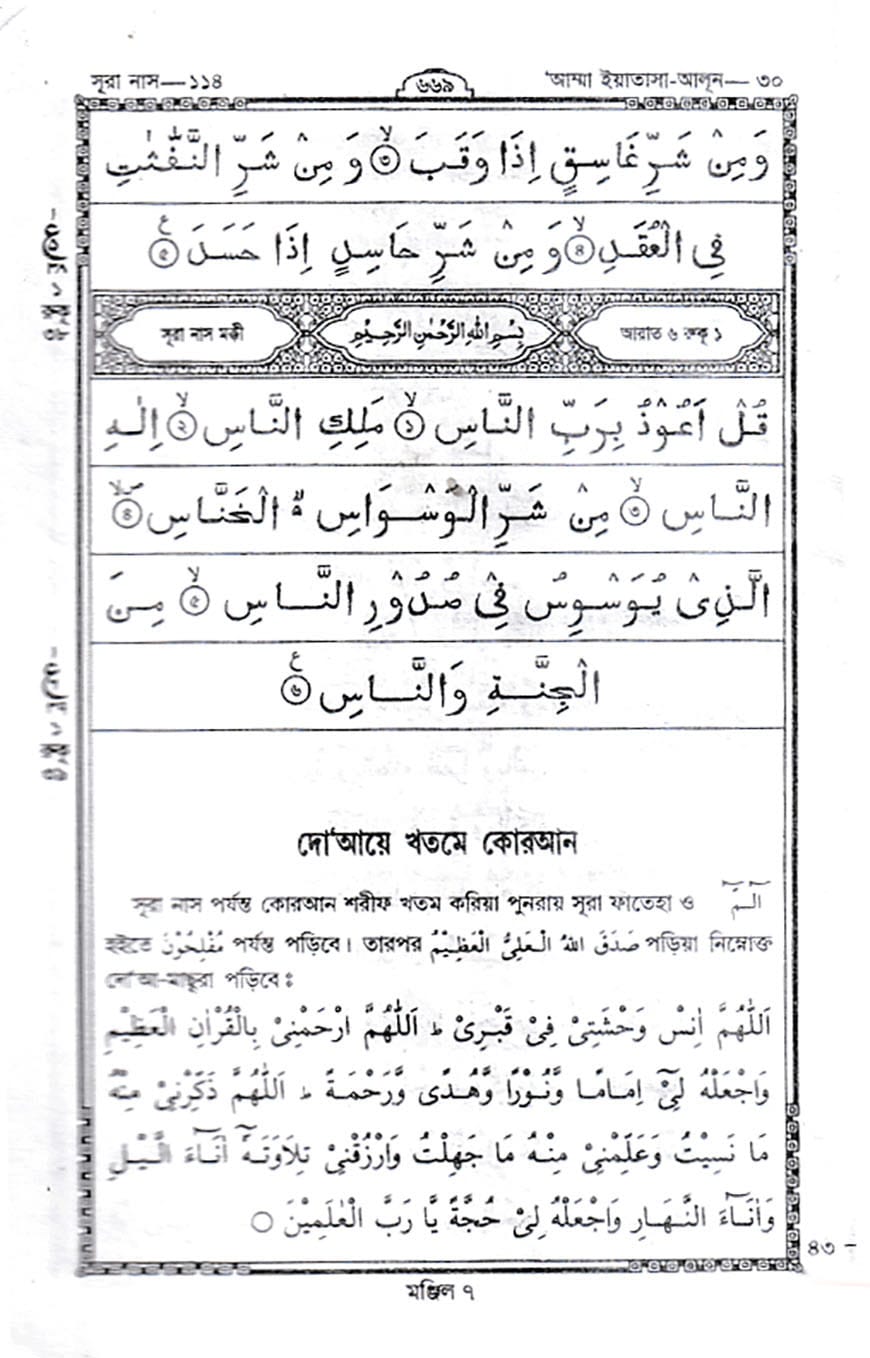 সূরা নাস—১১৪
৬৬৯
'আম্মা ইয়াতাসা-আলূন— ৩০
وَمِنْ شَرِّ غَاسِقٍ اِذَا وَقَبَ ۙ﴿৩﴾ وَمِنْ شَرِّ النَّفّٰثٰتِ
فِي الْعُقَدِ ۙ﴿৪﴾ وَمِنْ شَرِّ حَاسِدٍ اِذَا حَسَدَ ﴿৫﴾ۧ
সূরা নাস মক্কী
بِسْمِ اللّٰهِ الرَّحْمٰنِ الرَّحِيْمِ
আয়াত ৬ রুকূ ১
قُلْ اَعُوْذُ بِرَبِّ النَّاسِ ۙ﴿১﴾ مَلِكِ النَّاسِ ۙ﴿২﴾ اِلٰهِ
النَّاسِ ۙ﴿৩﴾ مِنْ شَرِّ الْوَسْوَاسِ ۙ الْخَنَّاسِ ﴿৪﴾
الَّذِىْ يُوَسْوِسُ فِىْ صُدُوْرِ النَّاسِ ۙ﴿৫﴾ مِنَ
الْجِنَّةِ وَالنَّاسِ ﴿৬﴾
দো'আয়ে খতমে কোরআন
সূরা নাস পর্যন্ত কোরআন শরীফ খতম করিয়া পুনরায় সূরা ফাতেহা ও الٓـمّٓ
হইতে مُفْلِحُوْنَ পর্যন্ত পড়িবে। তারপর صَدَقَ اللهُ الْعَلِىُّ الْعَظِيْمُ পড়িয়া নিম্নোক্ত
দো'আ-মাছুরা পড়িবে ঃ
اَللّٰهُمَّ اٰنِسْ وَحْشَتِىْ فِىْ قَبْرِىْ ط اَللّٰهُمَّ ارْحَمْنِىْ بِالْقُرْاٰنِ الْعَظِيْمِ
وَاجْعَلْهُ لِىْٓ اِمَامًا وَّنُوْرًا وَّهُدًى وَّرَحْمَةً ط اَللّٰهُمَّ ذَكِّرْنِىْ مِنْهُ
مَا نَسِيْتُ وَعَلِّمْنِىْ مِنْهُ مَا جَهِلْتُ وَارْزُقْنِىْ تِلَاوَتَهٗٓ اٰنَآءَ الَّيْلِ
وَاٰنَآءَ النَّهَارِ وَاجْعَلْهُ لِىْ حُجَّةً يَّا رَبَّ الْعٰلَمِيْنَ ۝
৪৩ –
মঞ্জিল ৭